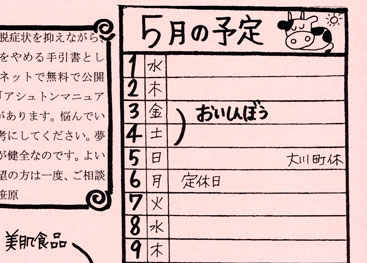 脱症状を抑えながら
をやめる手引書とし
ネットで無料で公開
「アシュトンマニュア
があります。悩んでい
考にしてください。夢
が健全なのです。よい
望の方は一度、ご相談
笹原
美肌食品
5月の予定
1 水
2 木
3 金 おいひぼう
4 土
5 日 大川町休
6 月 定休日
7 火
8 水
9 木